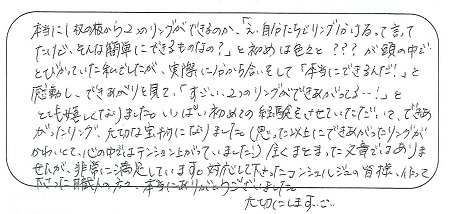 本当に1枚の板から2つのリングができるのか、「え、自分たちでリング分けるって言って
たけど、そんな簡単にできるものなの？」と初めは色々と？？？が頭の中で
とびかっていた私でしたが、実際に分かち合いをして「本当にできるんだ！」と
感動し、できあがりを見て、「すごい、2つのリングができあがってる…！」と
とても嬉しくなりました。いっぱい初めての経験をさせていただいて、できあ
がったリング、大切な宝物になりました。(思った以上にできあがったリングが
かわいくて、心の中ではテンション上がっていました！)全くまとまった文章ではあり
ませんが、非常に満足しています。対応して下さったコンシェルジュの皆様、作って
下さった職人の方々、本当にありがとうございました。
大切にします。